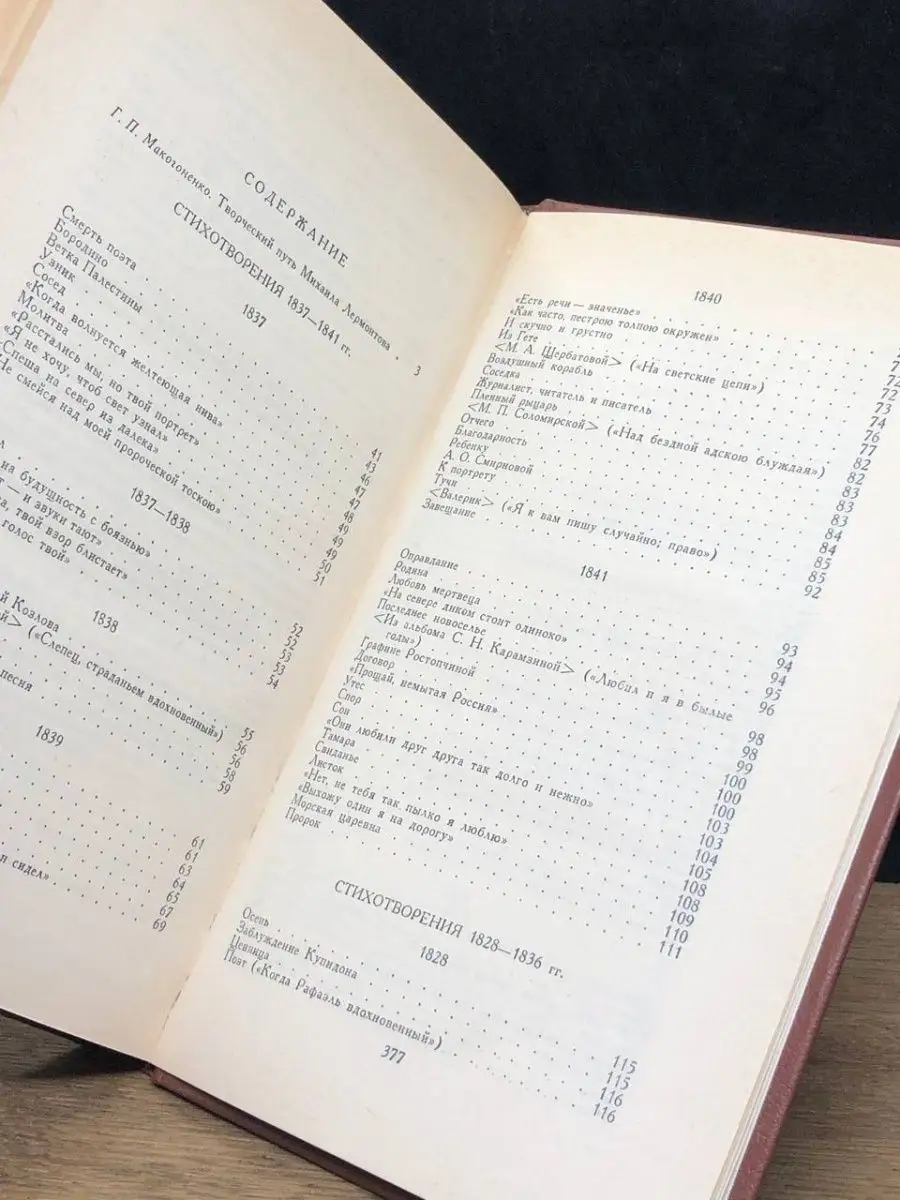 СОДЕРЖАНИЕ
Г. П. Макогоненко. Творческий путь Михаила Лермонтова . 3
СТИХОТВОРЕНИЯ 1837—1841 гг.
1837
Смерть поэта 41
Бородино 43
Ветка Палестины 46
Узник 47
Сосед 47
«Когда волнуется желтеющая нива» 48
Молитва 49
«Расстались мы, но твой портрет» 49
«Я не хочу, чтоб свет узнал» 50
«Спеша на север из далека» 51
Не смейся над моей пророческой тоскою»
1837—1838
на будущность с боязнью» 52
— и звуки тают» 52
твой взор блистает» 53
голос твой» 54
1838
Козлова 55
(«Слепец, страданьем вдохновенный») 56
56
песня 58
59
1839
61
61
63
64
65
н сидел» 67
69
1840
«Есть речи — значенье»
«Как часто, пестрою толпою окружен»
И скучно и грустно
Из Гете 72
<М. А. Щербатовой> («На светские цепи») 72
Воздушный корабль 73
Соседка 74
Журналист, читатель и писатель 76
Пленный рыцарь 77
<М. П. Соломирской> («Над бездной адскою блуждая») 82
Отчего 82
Благодарность 83
Ребенку 83
А. О. Смирновой 84
К портрету 84
Тучи 85
<Валерик> («Я к вам пишу случайно; право») 85
Завещание 92
1841
Оправдание 93
Родина 94
Любовь мертвеца 94
«На севере диком стоит одиноко» 95
Последнее новоселье 96
<Из альбома С. Н. Карамзиной> («Любил и я в былые
годы») 98
Графине Ростопчиной 98
Договор 99
«Прощай, немытая Россия» 100
Утес 100
Спор 100
Сон 103
«Они любили друг друга так долго и нежно» 103
Тамара 104
Свиданье 105
Листок 108
«Нет, не тебя так пылко я люблю» 108
«Выхожу один я на дорогу» 109
Морская царевна 110
Пророк 111
СТИХОТВОРЕНИЯ 1828—1836 гг.
1828
Осень 115
Заблуждение Купидона 115
Цевница 116
Поэт («Когда Рафаэль вдохновенный») 116
377